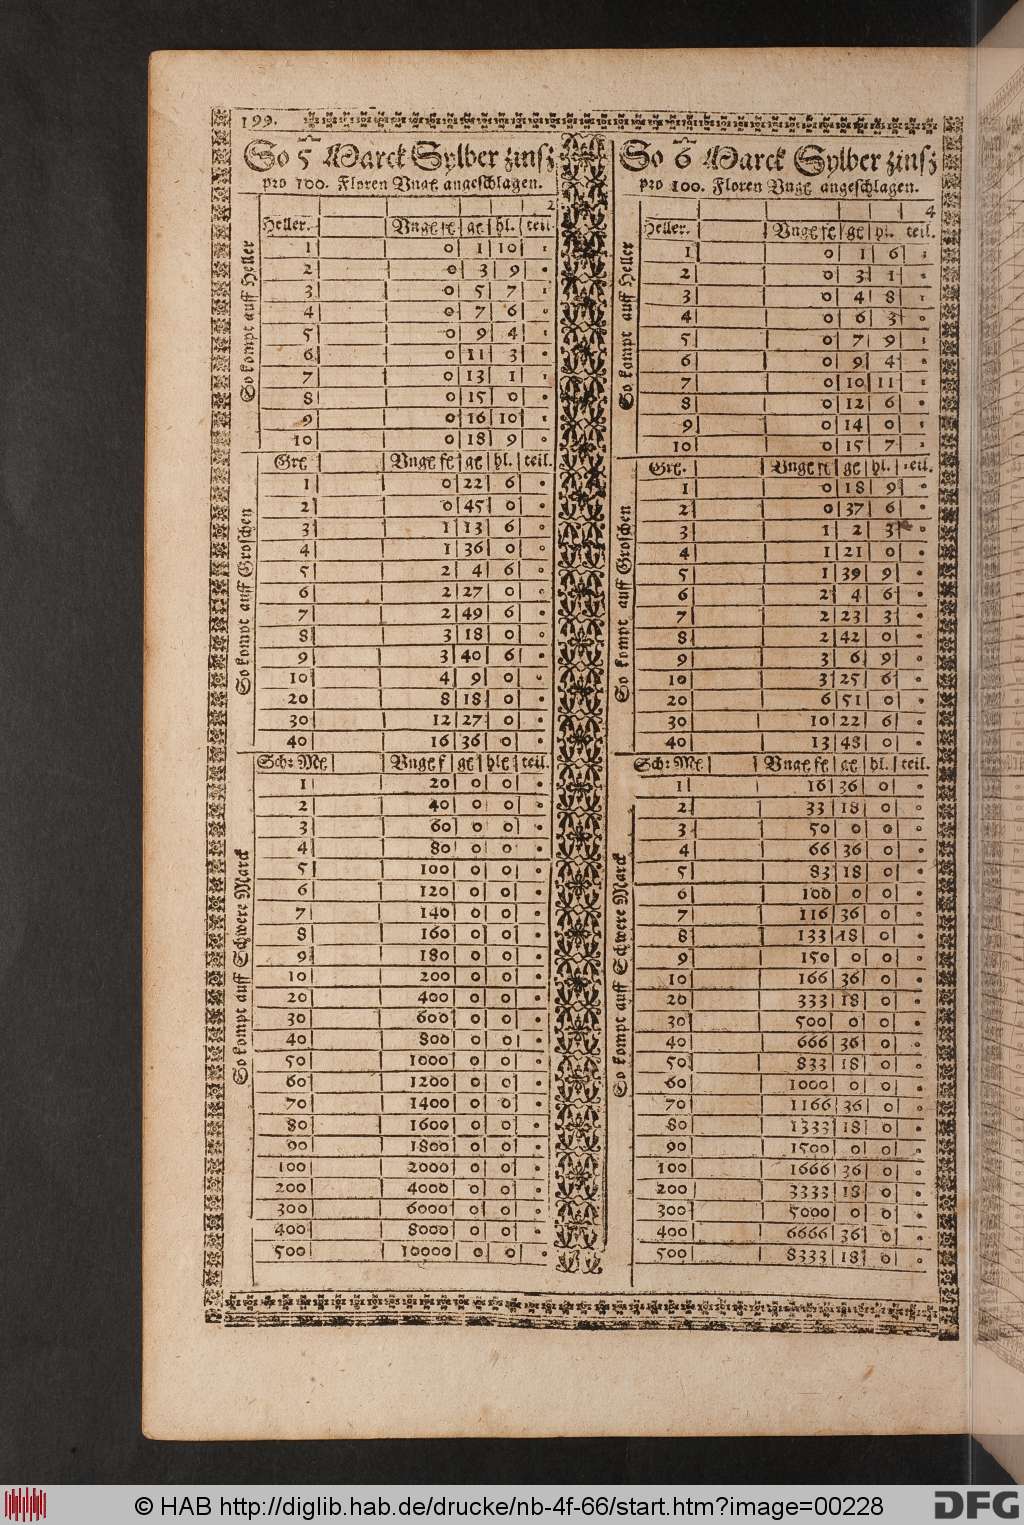 199.
So 5 Marck Sylber zinsz
pro 100. Floren Ungę angeschlagen.
2
Heller. Ungę fę gę hl. teil.
So kompt auff Heller
1 0 1 10 1
2 0 3 9 0
3 0 5 7 1
4 0 7 6 0
5 0 9 4 1
6 0 11 3 0
7 0 13 1 1
8 0 15 0 0
9 0 16 10 1
10 0 18 9 0
Grę Ungę fę gę hl. teil.
So kompt auff Groschen
1 0 22 6 0
2 0 45 0 0
3 1 13 6 0
4 1 36 0 0
5 2 4 6 0
6 2 27 0 0
7 2 49 6 0
8 3 18 0 0
9 3 40 6 0
10 4 9 0 0
20 8 18 0 0
30 12 27 0 0
40 16 36 0 0
Sch: Mę Ungę f gę hlę teil.
So kompt auff Schwere Marck
1 20 0 0 0
2 40 0 0 0
3 60 0 0 0
4 80 0 0 0
5 100 0 0 0
6 120 0 0 0
7 140 0 0 0
8 160 0 0 0
9 180 0 0 0
10 200 0 0 0
20 400 0 0 0
30 600 0 0 0
40 800 0 0 0
50 1000 0 0 0
60 1200 0 0 0
70 1400 0 0 0
80 1600 0 0 0
90 1800 0 0 0
100 2000 0 0 0
200 4000 0 0 0
300 6000 0 0 0
400 8000 0 0 0
500 10000 0 0 0
So 6 Marck Sylber zinsz
pro 100. Floren Ungę angeschlagen.
4
Heller. Ungę fę gę hl. teil.
So kompt auff Heller
1 0 1 6
2 0 3 1
3 0 4 8
4 0 6 3
5 0 7 9
6 0 9 4
7 0 10 11
8 0 12 6 0
9 0 14 0
10 0 15 7
Grę. Ungę fę gę hl. teil.
So kompt auff Groschen
1 0 18 9 0
2 0 37 6 0
3 1 2 3 0
4 1 21 0 0
5 1 39 9 0
6 2 4 6 0
7 2 23 3 0
8 2 42 0 0
9 3 6 9 0
10 3 25 6 0
20 6 51 0 0
30 10 22 6 0
40 13 48 0 0
Sch: Mę Ungę fę gę hl. teil.
So kompt auff Schwere Marck
1 16 36 0 0
2 33 18 0 0
3 50 0 0 0
4 66 36 0 0
5 83 18 0 0
6 100 0 0 0
7 116 36 0 0
8 133 18 0 0
9 150 0 0 0
10 166 36 0 0
20 333 18 0 0
30 500 0 0 0
40 666 36 0 0
50 833 18 0 0
60 1000 0 0 0
70 1166 36 0 0
80 1333 18 0 0
90 1500 0 0 0
100 1666 36 0 0
200 3333 18 0 0
300 5000 0 0 0
400 6666 36 0 0
500 8333 18 0 0
© HAB http://diglib.hab.de/drucke/nb-4f-66/start.htm?image=00228
DFG